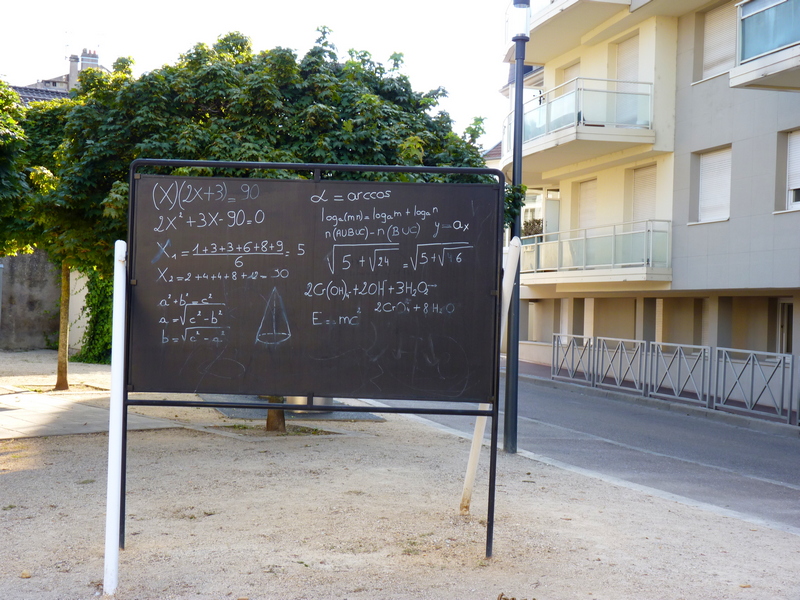 (X)(2X+3)=90
2X²+3X-90=0
X₁=(1+3+3+6+8+9)/6=5
X₂=2+4+4+8+12=30
a²+b²=c²
a=√(c²-b²)
b=√(c²-a²)
α=arccos
logₐ(mn)=logₐm+logₐn
n(AUBUC)-n(BUC) y=aₓ
√(5+√24)=√(5+√46)
2Cr(OH)₄+2OH+3H₂O₂→
2CrO₄+8H₂O
E=mc²